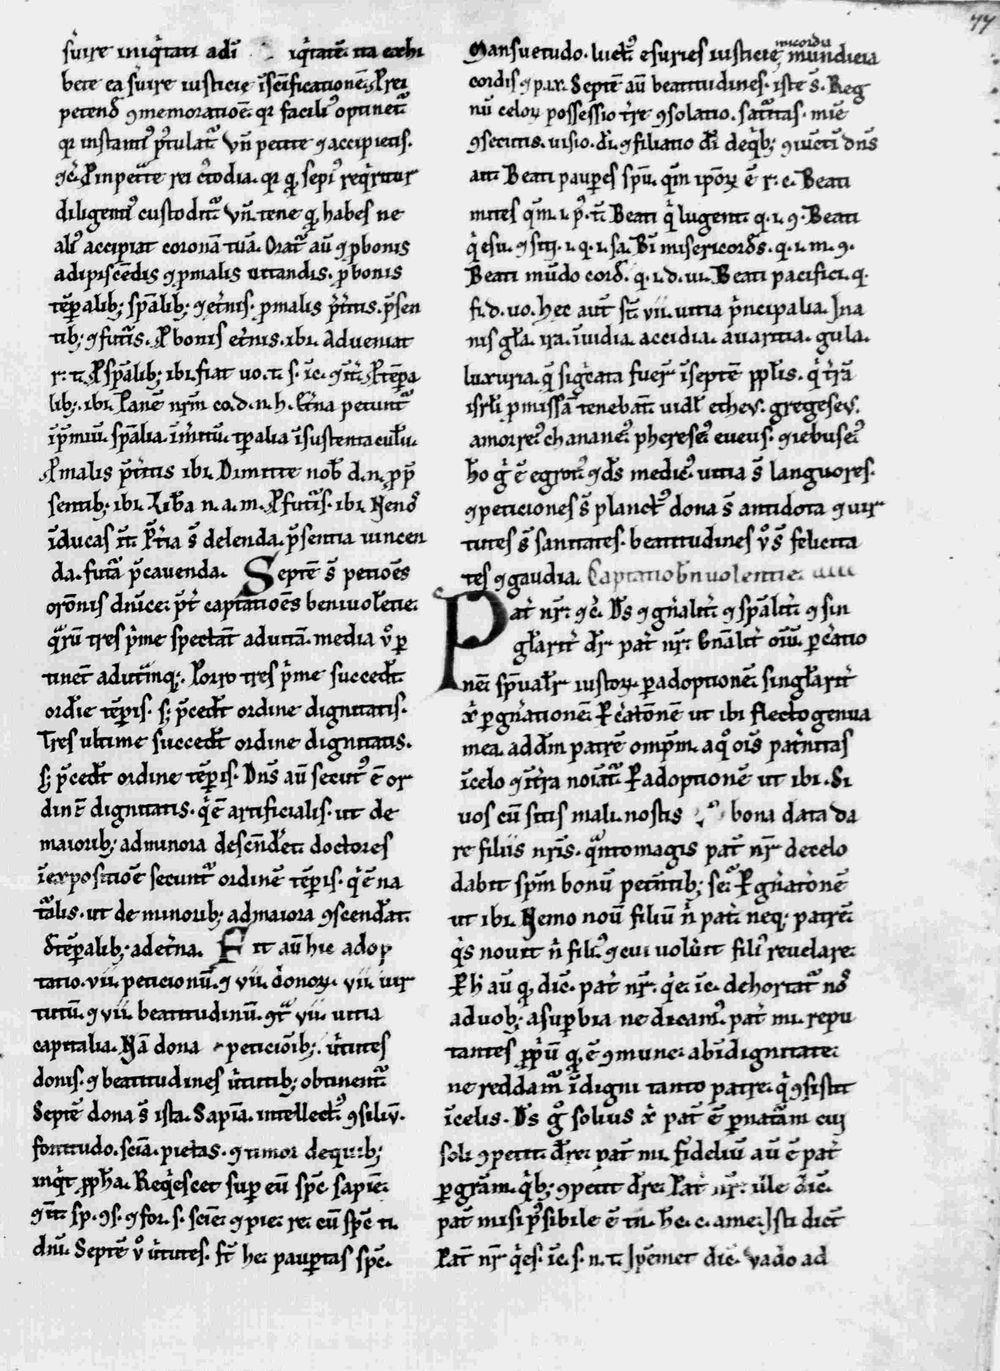 77
ſuire iniq̇tati adı̄ iq̇tatē. ita exhi
bete ea ſuire iuſticie ı̄ſc̄ificationē. P rei
petend̄ ꝯmemorationē. qr facili᷒ optinet᷑
qr inſtanti᷒ p̄tulat᷑ Vn̄ petite ꝯ accipietis.
diligenti᷒ cuſtodit᷑ Vn̄. tene q habes ne
ali᷒ accipiat coronā tuā. Orat᷑ aū ꝯ p bonis
adipiſcēdis ꝯ p malis uitandis. p bonis
tēꝑalib; ſpālib; ꝯ et̄nis. p malis p̄titis. p̄ſen
tib; ꝯ futīs. P bonis et̄nis. ibi. Adueniat
r. t. P ſpālib; ibi fiat uo. t. ſ. ı̄c. ꝯ ı̄t̄. P tēꝑa
lib; ibi. Panē nr̄m co. d. n. h. Et̄na petunt᷑
P malis p̄titis ibi. Dimitte nob̄ d. n. p p̄
ſentib; ibi. Lib̄a n. a. m. P futīs. ibi. Ne nos
ı̄ducas ı̄t̄. P̄t̄ia ſ̄ delenda. p̄ſentia uincen
da. futā p̄cauenda. Septē ſ̄ petiōēs
orōnis dn̄ice. p̄t̄ captatiōēs beniuolētie.
q᷑rū tres ṗme ſpectāt ad uitā. media v̊ ꝑ
tinet ad utūnq;. Porro tres ṗme ſuccedt̄
ordīe tēꝑis. ſ; p̄cedt̄ ordine dignitatis.
Tres ultime ſuccedt̄ ordine dignitatis.
ſ; p̄cedt̄ ordine tēꝑis. Dn̄s aū ſecut᷒ ē or
dinē dignitatis. q̇ ē artificialis. ut de
maiorib; ad minora deſcēdēti doctores
ı̄ expoſitiōē ſecunt᷑ ordinē tēꝑis. q̇ ē na
t᷑alis. ut de minorib; ad maiora ꝯſcendat.
d̄ tēꝑalib; ad et̄na. Fit aū hic adop
tatio. vii. peticionū. ꝯ vii. donoꝝ. vii. uir
tutū. ꝯ vii. beatitudinū. ꝯt᷑ vii. uitia
capitalia. Nā dona peticiōib;. u̇tutes
donis. ꝯ beatitudines u̇tutib; obtinent᷑
Septē dona ſ̄ iſta. Sapīa. intellect᷒ ꝯſiliū.
fortitudo. ſcīa. pietas. ꝯ timor de quib;
inq̇t ꝓph̄a. Req̇eſcet ſuꝑ eū ſp̄c ſapīe.
ꝯ ı̄t̄. ſp. ꝯſ. ꝯ for. ſ. ſcīe. ꝯ pie. re. eū ſp̄c ti.
dn̄i. Septē v̊ u̇tutes. ſt̄ he. pauꝑtas ſp̄c.
Manſuetudo. luct᷒ eſuries iuſticie, micordia mundicia
cordis ꝯ pax. Septē aū beatitudines. iſte ſ̄. Reg
nū celoꝝ poſſeſſio tr̄e ꝯſolatio. ſat᷑itas. mīe
ꝯſecutis. uiſio. dı̄. ꝯ filiatio dı̄ de q̇b; ꝯiūcti dn̄s
ait Beati pauꝑes ſpū. qm̄ ipōꝝ ē r. c. Beati
mites qm̄. i. p̊. t̄. Beati q̇ lugent. q. i. ꝯ. Beati
q̇ eſu. ꝯ ſiti. i. q. i. ſa. Bī miſericord̄s. q. i. m. ꝯ.
Beati mūdo cord̄. q. i. d. ui. Beati pacifici. q.
fi. d. uo. hec aut̄ ſt̄ vii. uitia ṗncipalia. Ina
nis gl̄a. ira. ı̄uidia. accidia. auaritia. gula.
luxuria. q̄ ſignificata fuer̄ ı̄ ſeptē ꝓplis. q̇ tr̄ā
iſrl̄i ꝓmiſſā tenebāt. uidl̄ ethev. gergeſev.
amorre᷒ chanane᷒ phereſe᷒ eueus. ꝯ iebuſe᷒
h̊o g̊ ē egrot᷒ ꝯ d̄s medic᷒ uitia ſ̄ languores.
ꝯ peticiones ſ̄ planct᷒ dona ſ̄ antidota ꝯ uir
tutes ſ̄ ſanitates. beatitudines v̊ ſ̄ felicita
tes ꝯ gaudia. Captatio bn̄uolentie.
Pat̄ nr̄. ꝯc̄. D̄s ꝯ gn̄alit̄. ꝯ ſpālit̄. ꝯ ſin
gl̄arit̄ dr̄ pat̄ nr̄. Gn̄alit̄ oīū. ꝑ c̄atio
nē. ſp̄ualr̄ iuſtoꝝ. ꝑ adoptionē. ſingl̄arit̄
x̄ ꝑ gn̄ationē. P c̄atōnē ut ibi flecto genua
mea. ad dm̄ patrē omp̄m. a q̊ oı̄s pat̄nitas
ı̄ celo ꝯ ı̄ t̄ra noı̄at᷑. P adoptionē ut ibi. Si
uos cū ſitis mali. noſtis bona data da
re filiis nr̄is. q᷑nto magis pat̄ nr̄ de celo
dabit ſpm̄ bonū petētib; ſe. P gn̄atōnē
ut ibi. Nemo nouit filiū n̄ pat̄. neq; patrē
q̇s nouit n̄ fili᷒. ꝯ cui uolūit fili᷒ reuelare.
P h̊ aū q dīc. pat̄ nr̄. q̇ e. ı̄c. dehortat᷑ nos
a duob; a ſuꝑbia ne dicam᷒. pat̄ mi. repu
tantes ꝓpū q ē ꝯmune. ab ı̄dignitate.
ne reddam᷑ ı̄digni tanto patre. q̇ ꝯſiſtit
ı̄ celis. D̄s g̊ ſolius x̄ pat̄ ē ꝑ naturam cui
ſoli ꝯpetit dr̄e. pat̄ mi. fideliū aū ē pat̄
ꝑ grām. q̇b; ꝯpetit dr̄e. Pat̄ nr̄. ille dīc.
pat̄ mi ſi p̊ſibile ē tn̄. h̄c. c. a me. Iſti dicūt
Pat̄ nr̄ q̇ es. ı̄c. ſ. n. t. Ip̄emet dīc. Vado ad